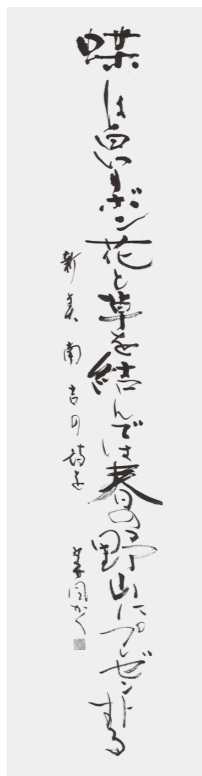 蝶は白いリボン花と草を結んでは春の野山にプレゼントする
新美南吉の詩を
かく